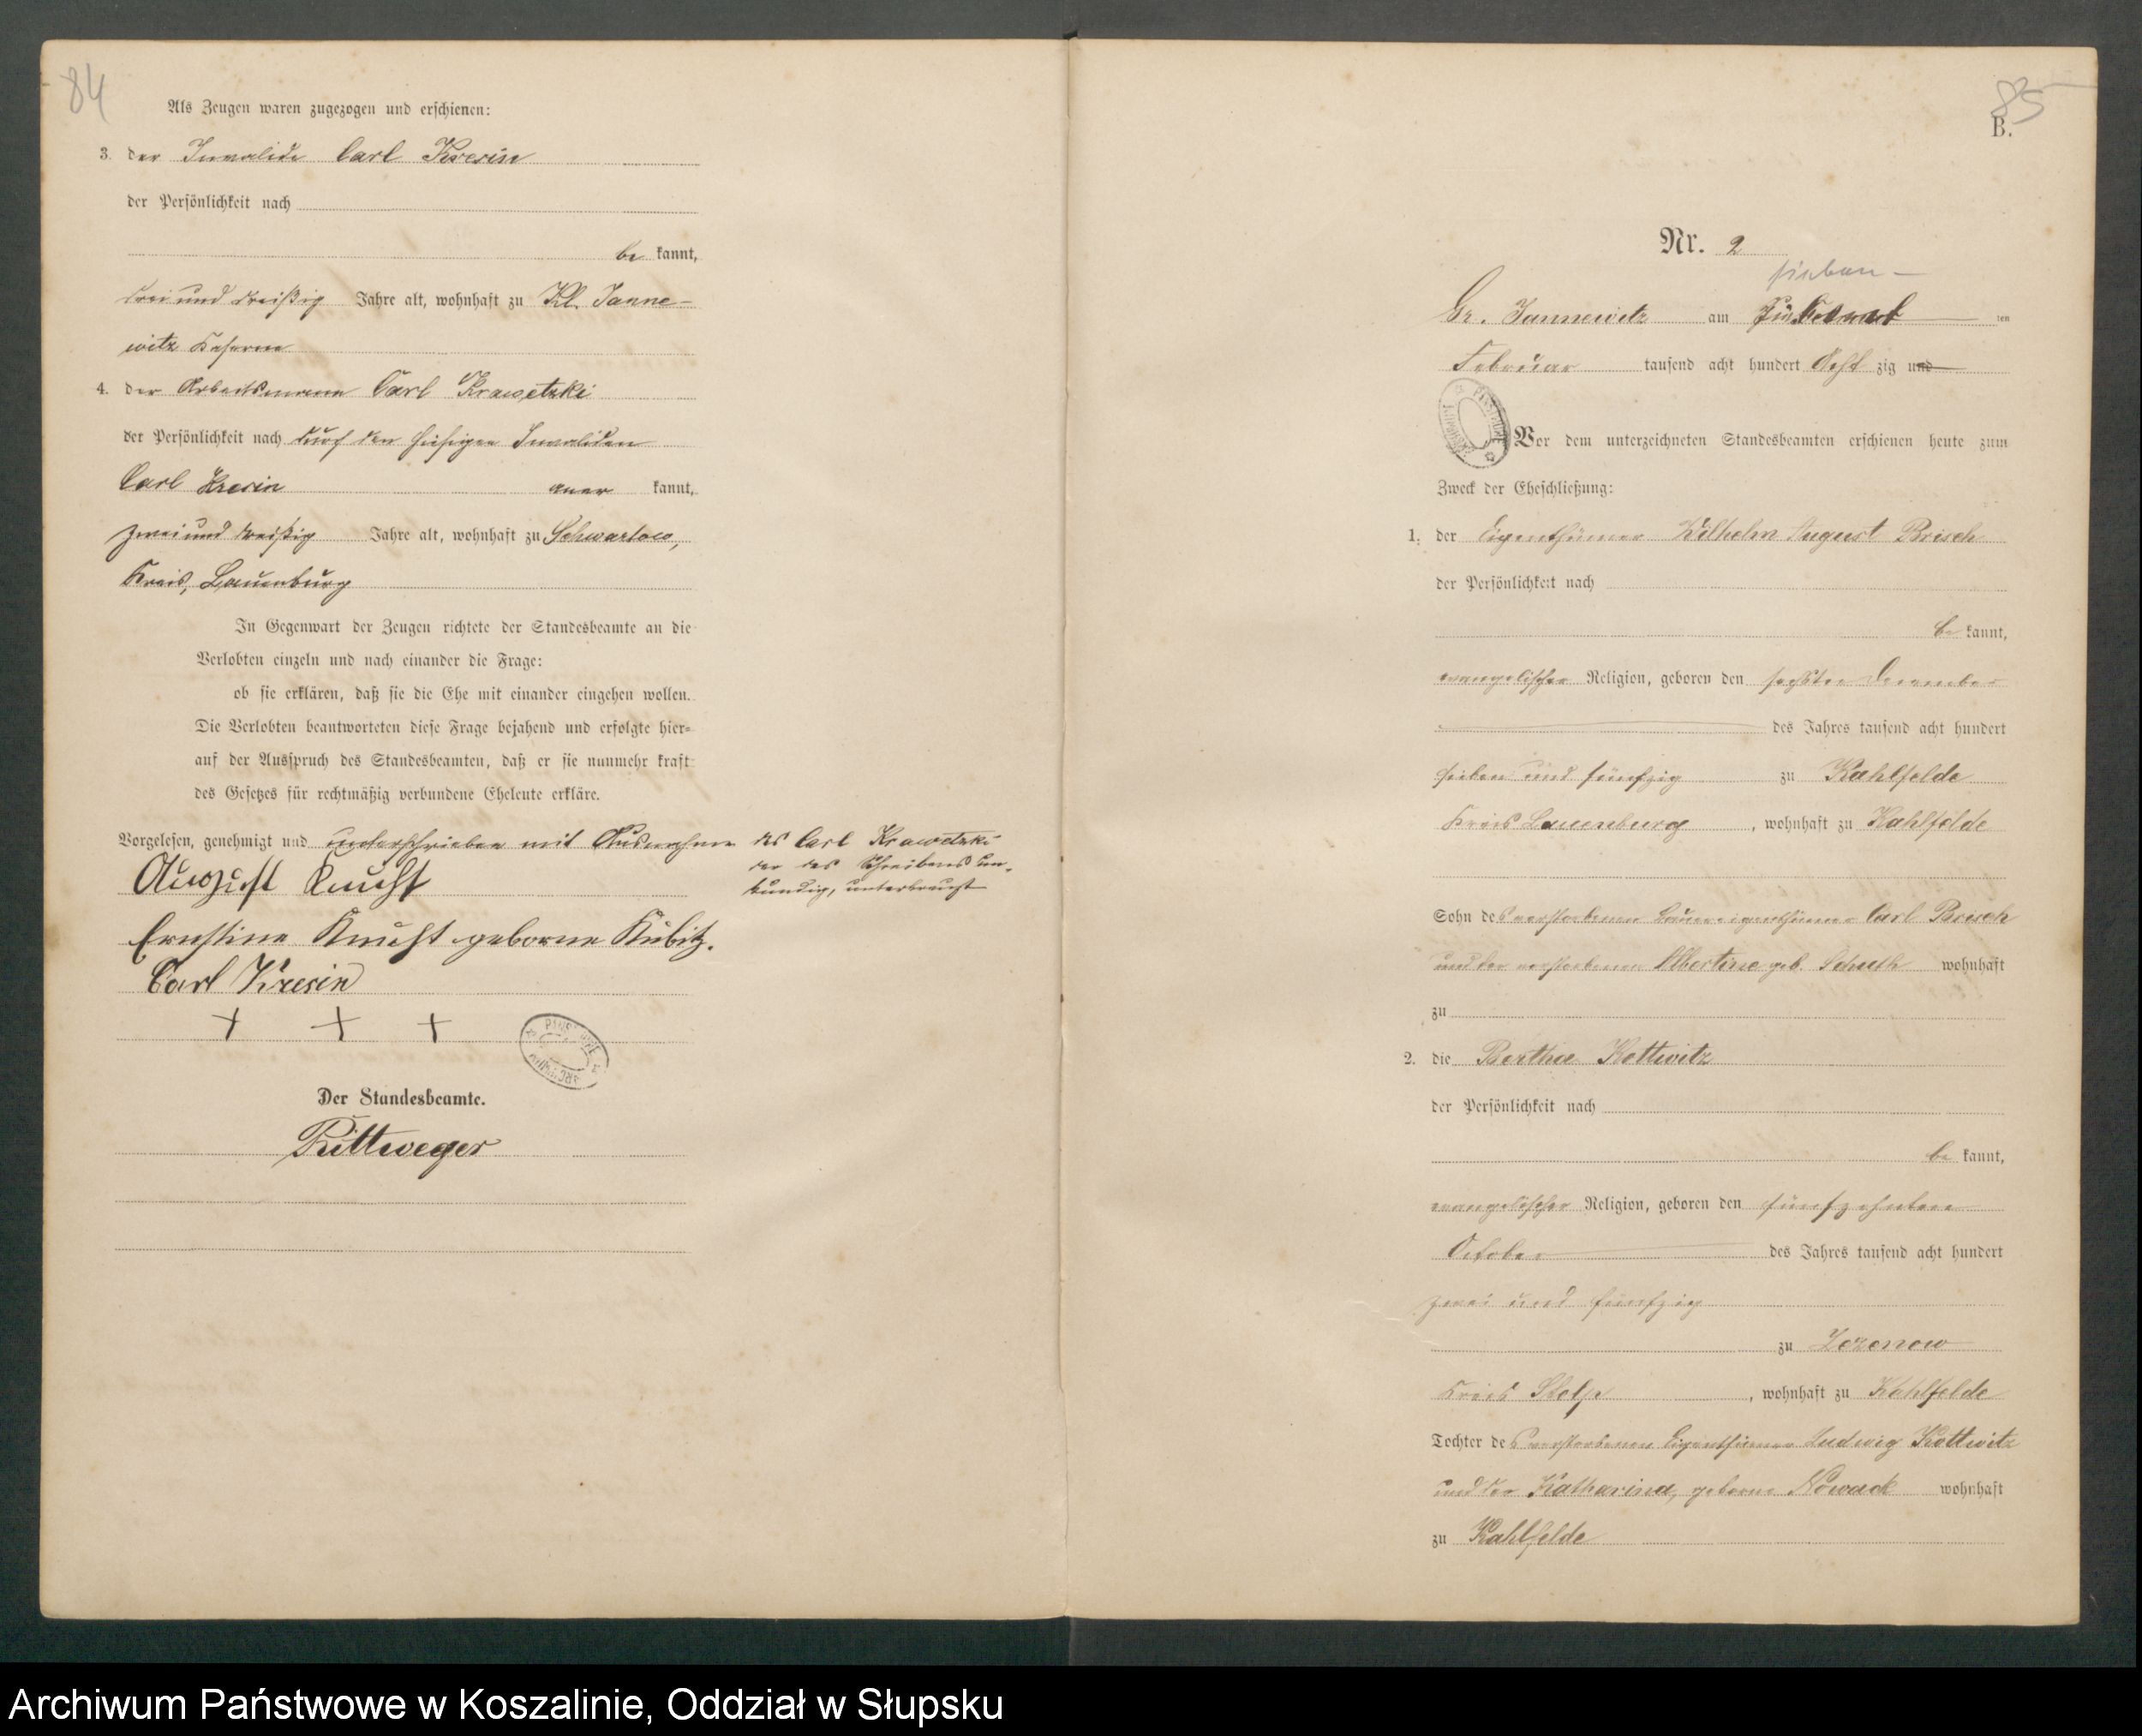 84
Als Zeugen waren zugezogen und erschienen:
3. der Invalide Carl Kresin
der Persönlichkeit nach
be kannt,
drei und dreißig Jahre alt, wohnhaft zu Kl. Janne-
witz Kaserne
4. der Arbeitsmann Carl Krawetzki
der Persönlichkeit nach durch den hiesigen Invaliden
Carl Kresin aner kannt,
zwei und dreißig Jahre alt, wohnhaft zu Schwartow,
Kreis, Lauenburg
In Gegenwart der Zeugen richtete der Standesbeamte an die
Verlobten einzeln und nach einander die Frage:
ob sie erklären, daß sie die Ehe mit einander eingehen wollen.
Die Verlobten beantworteten diese Frage bejahend und erfolgte hier-
auf der Ausspruch des Standesbeamten, daß er sie nunmehr kraft
des Gesetzes für rechtmäßig verbundene Eheleute erkläre.
Vorgelesen, genehmigt und unterschrieben mit Ausnahme des Carl Krawetzki
der des Schreibens un-
kundig, unterkreuzt
August Knecht
Ernstine Knecht geborne Kubitz.
Carl Kresin
+ + +
Der Standesbeamte.
Rittweger
85
B.
Nr. 2
sieben
Gr. Jannewitz am ten
Februar tausend acht hundert Acht zig und
Vor dem unterzeichneten Standesbeamten erschienen heute zum
Zweck der Eheschließung:
1. der Eigenthümer Wilhelm August Brisch
der Persönlichkeit nach
be kannt,
evangelischer Religion, geboren den sechsten Dezember
des Jahres tausend acht hundert
sieben und fünfzig zu Kahlfelde
Kreis Lauenburg, wohnhaft zu Kahlfelde
Sohn des verstorbenen Carl Brisch
und der verstorbenen Albertine geb. Schuth wohnhaft
zu
2. die Bertha Kottwitz
der Persönlichkeit nach
be kannt,
evangelischer Religion, geboren den fünfzehnten
October des Jahres tausend acht hundert
zwei und fünfzig
zu Zezenow
Kreis Stolp, wohnhaft zu Kahlfelde
Tochter des verstorbenen Eigenthümer Ludwig Kottwitz
und der Katharina, geborne Nowack wohnhaft
zu Kahlfelde
Archiwum Państwowe w Koszalinie, Oddział w Słupsku